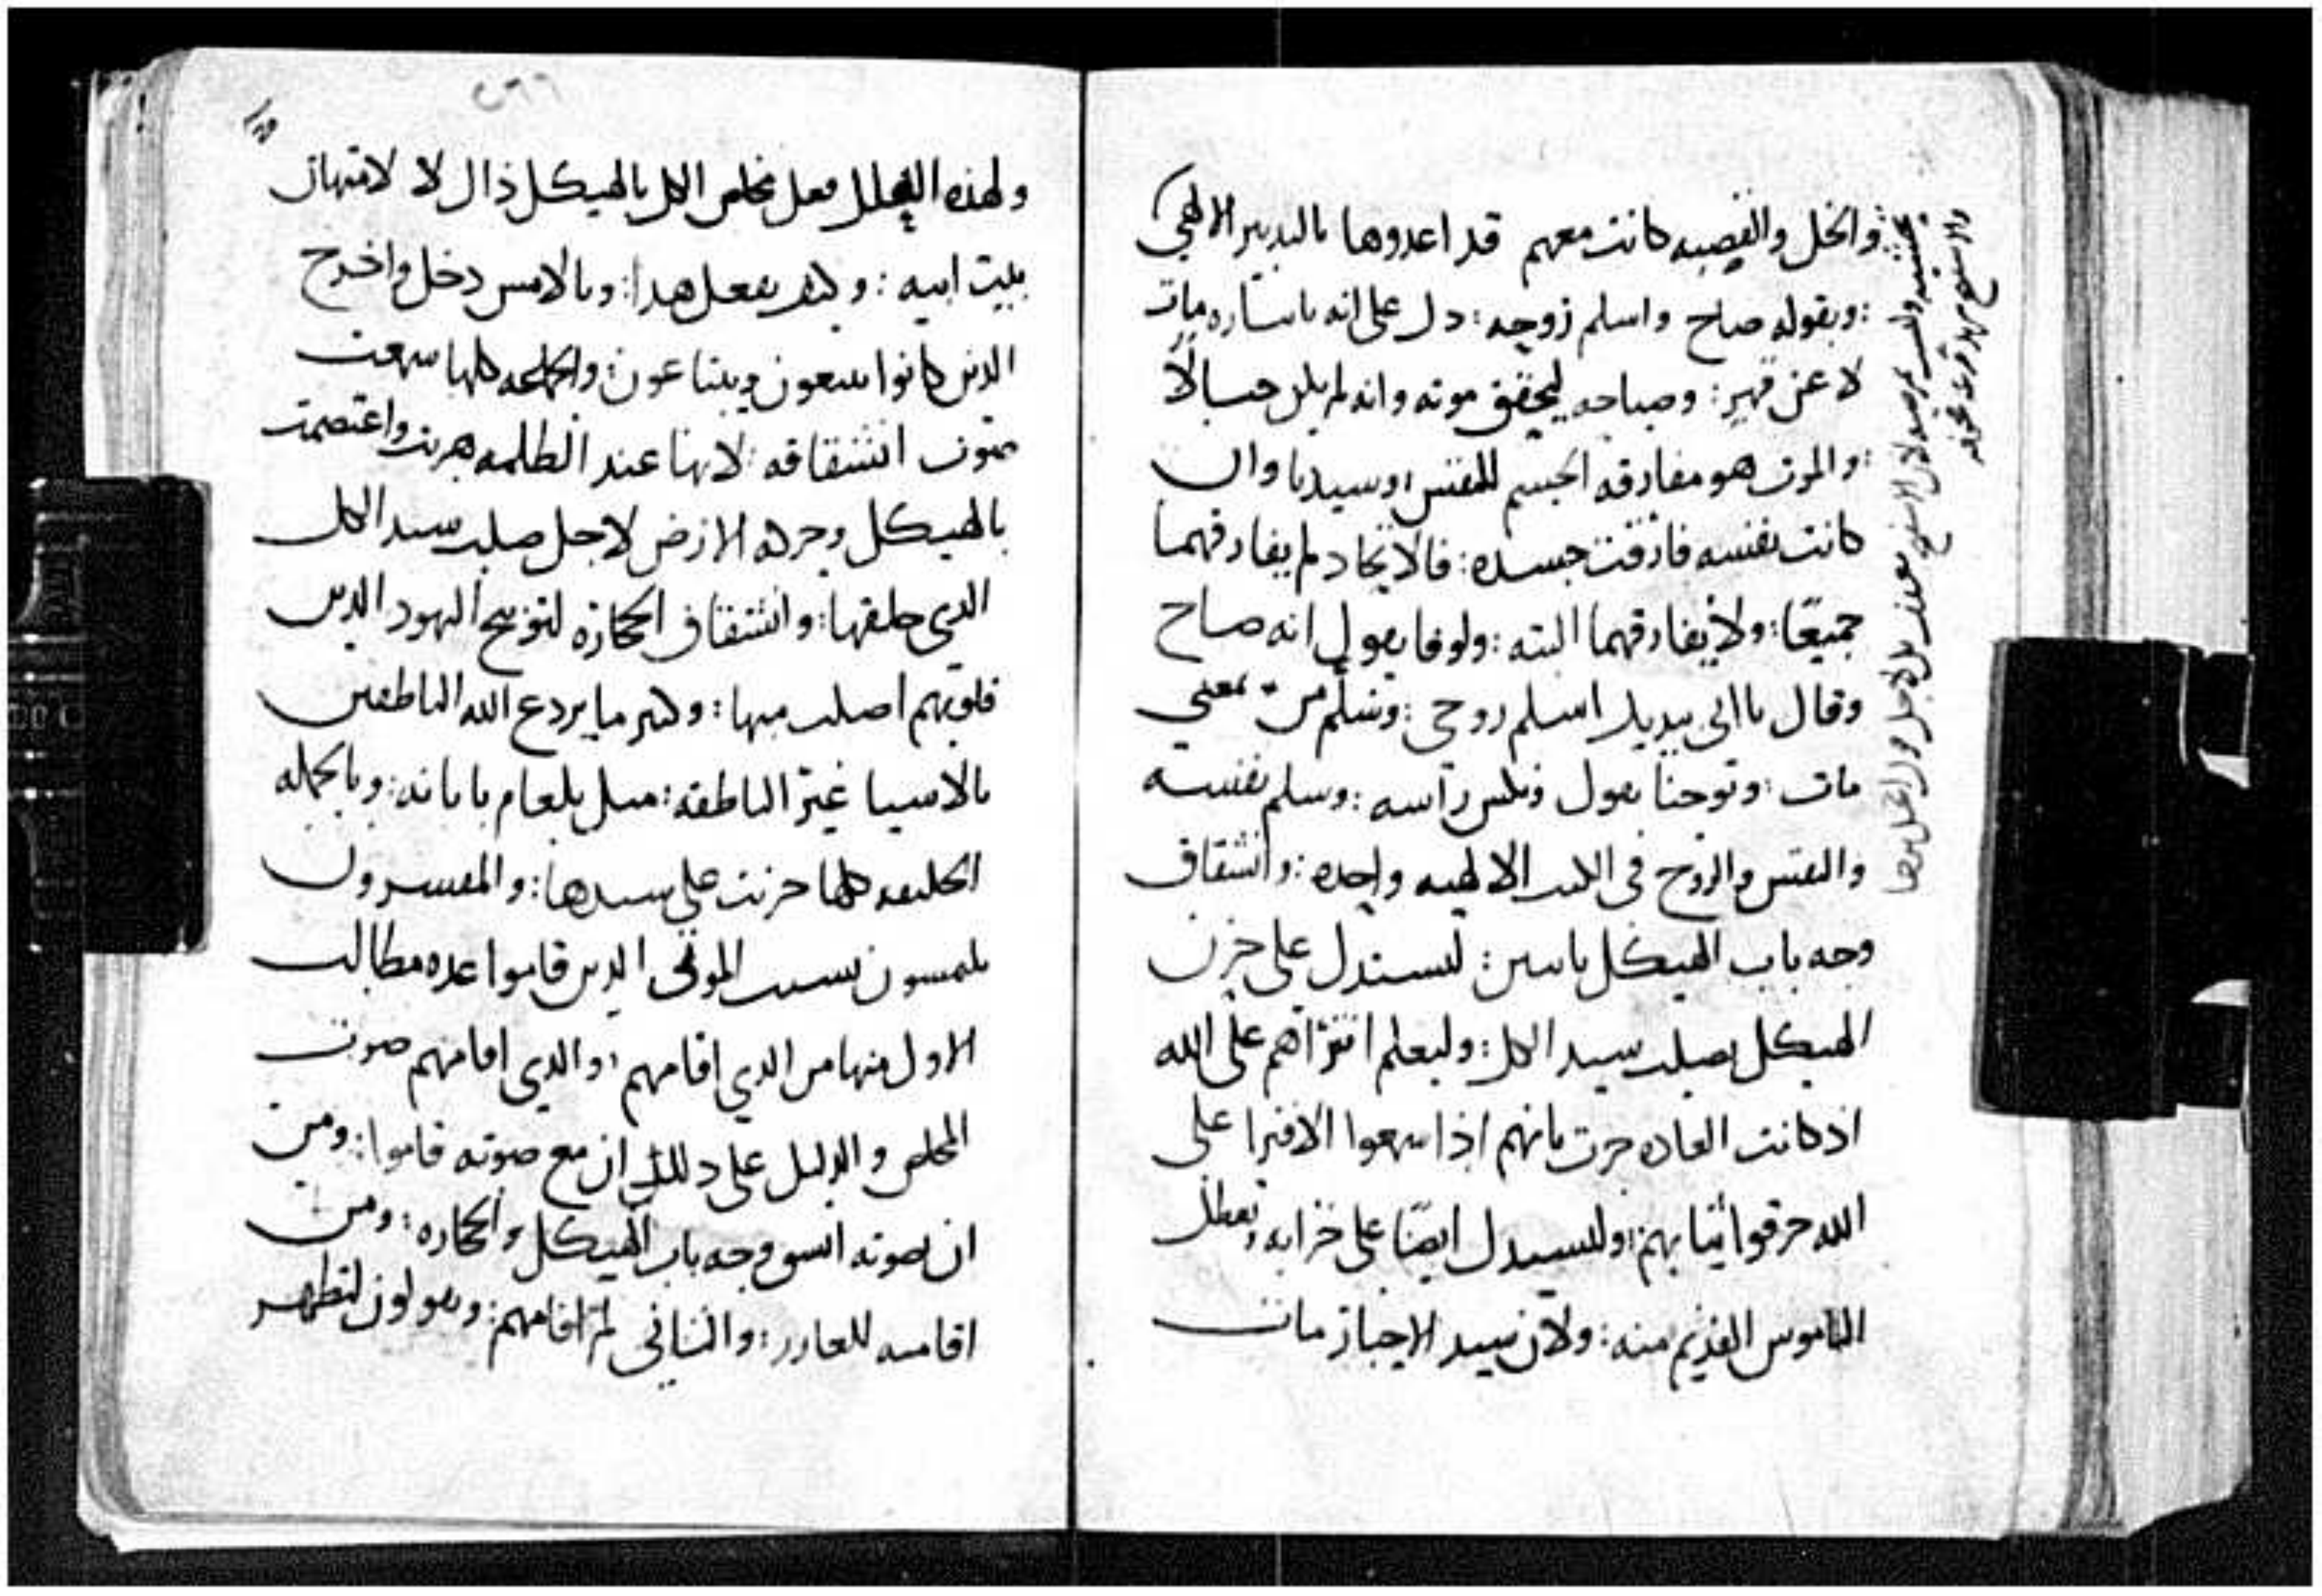 والخل والقصبه كانت معهم قد اعدوها بالتدبير الالهي
: وبقوله صاح واسلم روحه : دل على انه باىىاره مات
لا عن قهر : وصياحه ليحقق موته وانه لم يكن خيالا
: والموت هو مفارقه الجسم للنفس : وسيدنا وان
كانت نفسه فارقت جسده : فالاتحاد لم يفارقهما
جميعا : ولا يفارقهما البته : ولوقا يقول انه صاح
وقال يا ابي بيديك اسلم روحي : وسلم مرٮ بمعني
مات : ويوحنا يقول ونكس رأسه : وسلم نفسه
والنفس والروح في الكتب الالهيه واحده : وانشقاق
وجه باب الهيكل باثنين : ليستدل على حزن
الهيكل بصلب سيد الكل : وليعلم افتراهم على الله
اذ كانت العاده جرت بانهم اذا سمعوا الافترا على
الله خرقوا ثيابهم : وليستدل ايضا على خرابه وتعطل
الناموس القديم منه : ولان سيد الاحبار مات
٢٦٦
ولهذه العلل فعل مخلص الكل بالهيكل ذاك لا لامتهان
بيت ابيه : وكيف يفعل هدا : وبالامس دخل واخرج
الدين كانوا يبيعون ويبتاعون : والجماعه كلها سمعت
صوت انشقاقه : لانها عند الظلمه هربت واعتصمت
بالهيكل وحركه الارض لاجل صلب سيد الكل
الدي خلقها : وانشقاق الحجاره لتوبيخ اليهود الدين
قلوبهم اصلب منها : وكثير ما يردع الله الناطقين
بالاشيا غير الناطقه : مثل بلعام باتانه : وبالجمله
الخليقه كلها حزنت على سيدها : والمفسرون
يلتمسون بسبب الموتى الدين قاموا عده مطالب
الاول منها من الدي اقامهم : والدي اقامهم صوت
المخلص والدليل على دلك ان مع صوته قاموا : ومن
ان بصوته انشق وجه باب الهيكل والحجاره : ومن
اقامته للعازر : والثاني لم اقامهم : ويقولون لتظهر